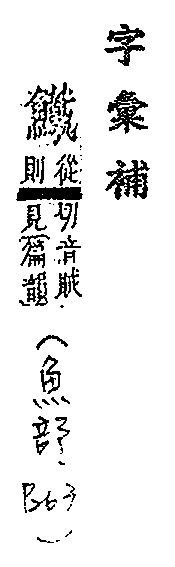 字彙補
從
則
切音賊
見篇韻
（魚部．B63）